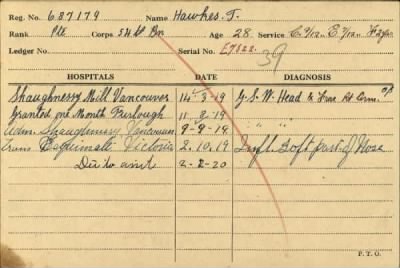 Reg. No. 687179 Name Hawkes. J.
Rank Pte Corps. 54th Bn Age 28. Service C. 9/12. E. 7/12. F. 2 yrs
Ledger No. Serial No. E7822. 39
HOSPITALS DATE DIAGNOSIS
Shaughnessy Mill Vancouver 14-3-19 G.S.W. Head & Frac Rt
Granted one Month Furlough 11-8-19
Adm. Shaughnessy Vancouver 9-9-19 " "
Trans Esquimalt Victoria 2.10.19 Soft part of Nose
Dis to unit 2-2-20
P. T. O.